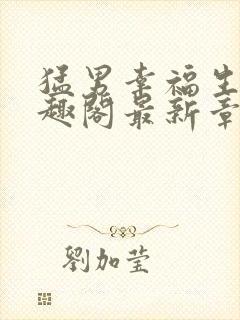 猛男幸福生
趣阁最新章
劉加莹